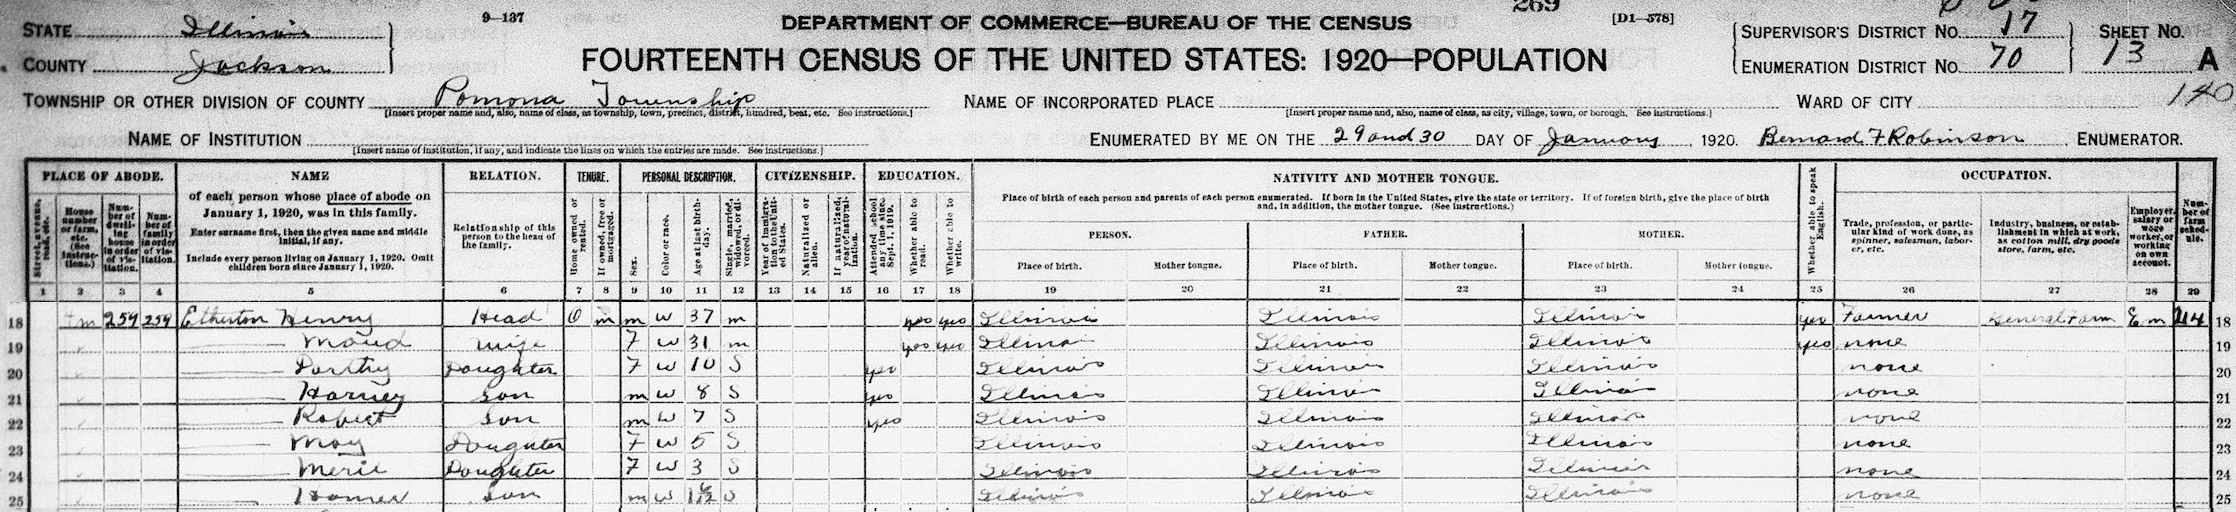 269
9—137
DEPARTMENT OF COMMERCE—BUREAU OF THE CENSUS
[D1—578]
STATE Illinois
COUNTY Jackson
FOURTEENTH CENSUS OF THE UNITED STATES: 1920—POPULATION
SUPERVISOR'S DISTRICT NO. 17
ENUMERATION DISTRICT NO. 70
SHEET NO.
13 A
140
TOWNSHIP OR OTHER DIVISION OF COUNTY Pomona Township
[Insert proper name and, also, name of class, as township, town, precinct, district, hundred, beat, etc. See instructions.]
NAME OF INCORPORATED PLACE
[Insert proper name and, also, name of class, as city, village, town, or borough. See instructions.]
WARD OF CITY
NAME OF INSTITUTION
[Insert name of institution, if any, and indicate the lines on which the entries are made. See instructions.]
ENUMERATED BY ME ON THE 29 and 30 DAY OF January, 1920. Bernard F Robinson, ENUMERATOR.
PLACE OF ABODE.
Street, avenue, road, etc.
House number or farm, etc. (See instructions.)
Number of dwelling house in order of visitation.
Number of family in order of visitation.
NAME
of each person whose place of abode on January 1, 1920, was in this family.
Enter surname first, then the given name and middle initial, if any.
Include every person living on January 1, 1920. Omit children born since January 1, 1920.
RELATION.
Relationship of this person to the head of the family.
TENURE.
Home owned or rented.
If owned, free or mortgaged.
PERSONAL DESCRIPTION.
Sex.
Color or race.
Age at last birthday.
Single, married, widowed, or divorced.
CITIZENSHIP.
Year of immigration to the United States.
Naturalized or alien.
If naturalized, year of naturalization.
EDUCATION.
Attended school any time since Sept. 1, 1919.
Whether able to read.
Whether able to write.
NATIVITY AND MOTHER TONGUE.
Place of birth of each person and parents of each person enumerated. If born in the United States, give the state or territory. If of foreign birth, give the place of birth and, in addition, the mother tongue. (See instructions.)
PERSON.
Place of birth. Mother tongue.
FATHER.
Place of birth. Mother tongue.
MOTHER.
Place of birth. Mother tongue.
Whether able to speak English.
OCCUPATION.
Trade, profession, or particular kind of work done, as spinner, salesman, laborer, etc.
Industry, business, or establishment in which at work, as cotton mill, dry goods store, farm, etc.
Employer, salary or wage worker, or working on own account.
Number of farm schedule.
1 2 3 4 5 6 7 8 9 10 11 12 13 14 15 16 17 18 19 20 21 22 23 24 25 26 27 28 29
18 Fm 259 259 Etherton Henry Head O m m W 37 m yes yes Illinois Illinois Illinois yes Farmer General Farm Em 214 18
19 Maud wife F W 31 m yes yes Illinois Illinois Illinois yes none 19
20 Dorthy Daughter F W 10 S yes Illinois Illinois Illinois none 20
21 Harvey son m W 8 S yes Illinois Illinois Illinois none 21
22 Robert son m W 7 S yes Illinois Illinois Illinois none 22
23 May Daughter F W 5 S Illinois Illinois Illinois none 23
24 Merie Daughter F W 3 S Illinois Illinois Illinois none 24
25 Homer son m W 1 6/12 S Illinois Illinois Illinois none 25